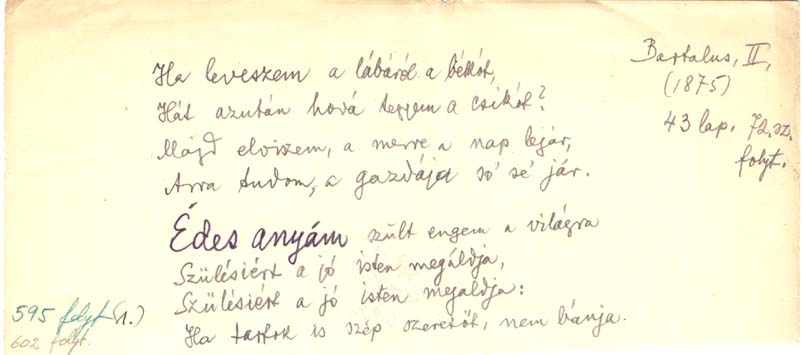 Ha leveszem a lábáról a békót,
Hát azután hová tegyem a csikót?
Majd elviszem, a merre a nap lejár,
Arra tudom, a gazdája só sé jár.
Édes anyám szült engem a világra
Szülésiért a jó isten megáldja,
Szülésiért a jó isten megaldja:
Ha tartok is szép szeretőt, nem bánja.
Bartalus, II,
(1875)
43 lap. 72.sz.
folyt.
595 folyt (1.)
602 folyt.